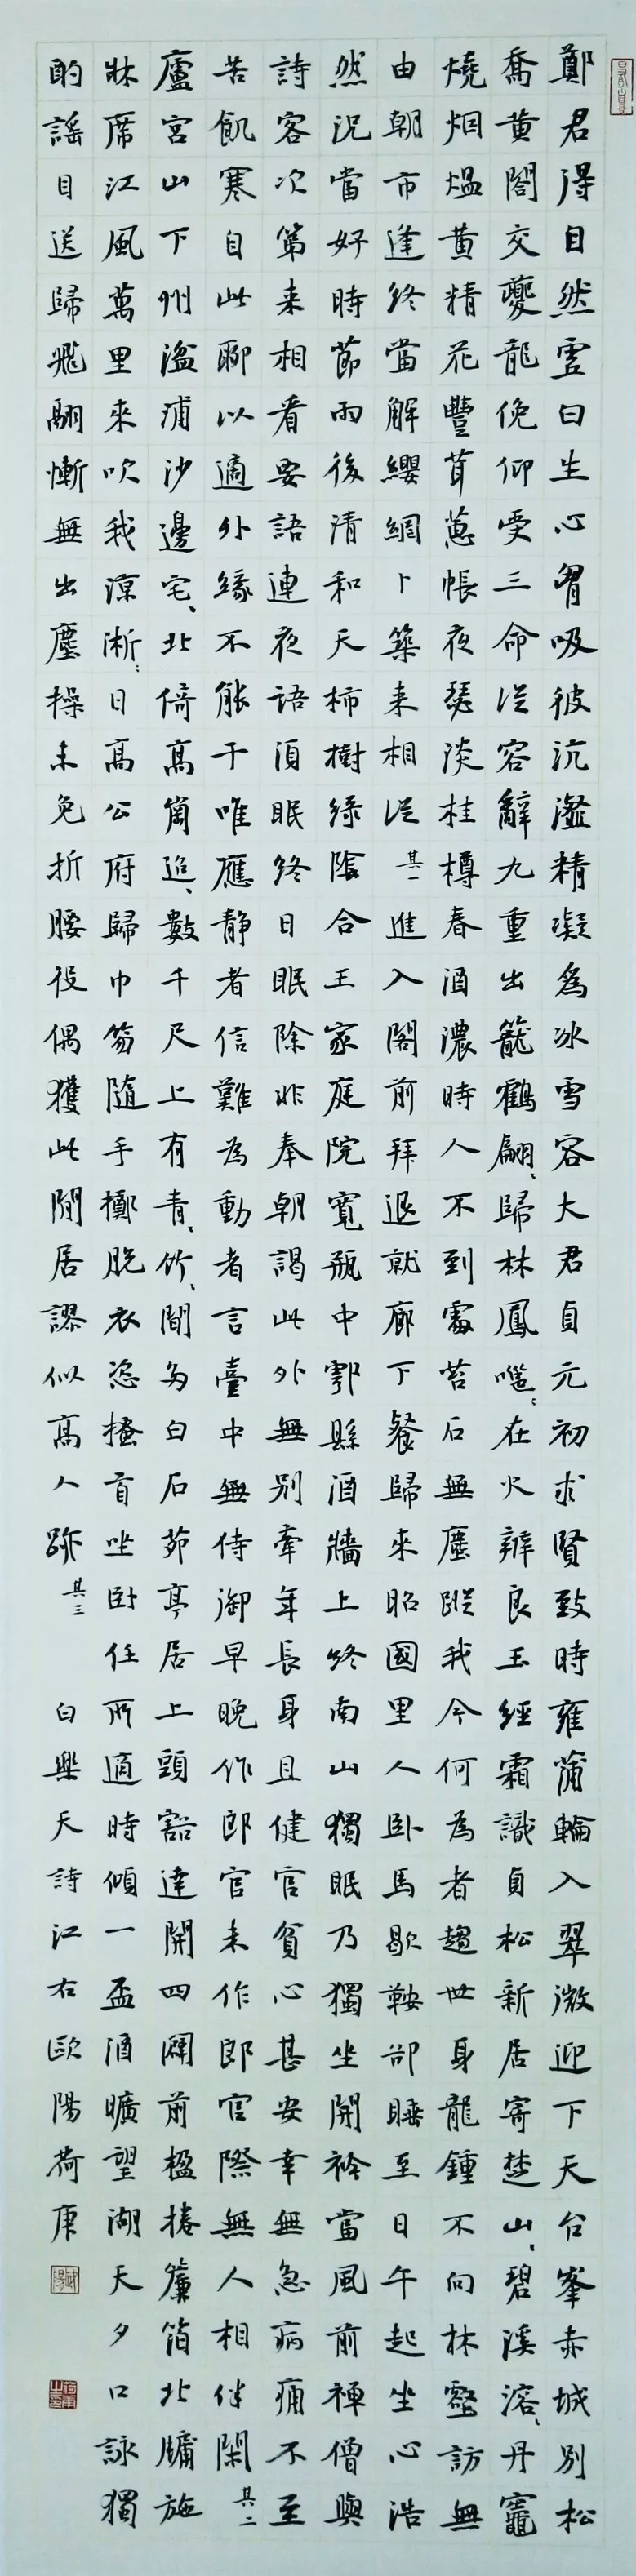 鄭君得自然虛白生心胷吸彼沆瀣精凝為冰雪容大君貞元初求賢致時雍蒲輪入翠微迎下天台峯赤城別松
喬黃閣交夔龍俛仰受三命從容辭九重出籠鶴翩〻歸林鳳噰〻在火辨良玉經霜識貞松新居寄楚山〻碧溪溶〻丹竈
燒烟熅黃精花豐茸蕙帳夜瑟淡桂樽春酒濃時人不到處苔石無塵蹤我今何為者趨世身龍鍾不向林壑訪無
由朝市逢終當解纓網卜築來相從 其一 進入閣前拜退就廊下餐歸來昭國里人臥馬歇鞍卻睡至日午起坐心浩
然況當好時節雨後清和天柿樹綠陰合王家庭院寬瓶中鄠縣酒墻上終南山獨眠乃獨坐開衿當風前禪僧與
詩客次第來相看要語連夜語須眠終日眠除非奉朝謁此外無別牽年長身且健官貧心甚安幸無急病痛不至
苦飢寒自此聊以適外緣不能干唯應靜者信難為動者言臺中無侍御早晚作郎官未作郎官際無人相伴閑 其二
廬宮山下州湓浦沙邊宅〻北倚高崗迢〻數千尺上有青〻竹〻間多白石茆亭居上頭豁達開四闢前楹捲簾箔北牖施
牀席江風萬里來吹我涼淅〻日高公府歸巾笏隨手擲脫衣恣搔首坐臥任所適時傾一盃酒曠望湖天夕口詠獨
酌謠目送歸飛翮慚無出塵操未免折腰役偶獲此閒居謬似高人跡 其三 白樂天詩江右歐陽荷庚